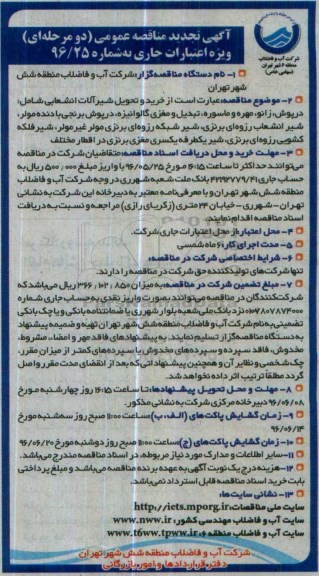 آگهی تجدید مناقصه عمومی (دو مرحله‌ای)
ویژه اعتبارات جاری به‌شماره ۹۶/۲۵
شرکت آب و فاضلاب
منطقه ۶ شهر تهران
(سهامی خاص)
۱- نام دستگاه مناقصه‌گزار: شرکت آب و فاضلاب منطقه شش
شهر تهران
۲- موضوع مناقصه: عبارت است از خرید و تحویل شیرآلات انشعابی شامل:
درپوش، زانو، مهره و ماسوره، تبدیل و مغزی گالوانیزه، درپوش برنجی با دنده مولر،
شیر انشعاب رزوه‌ای برنزی، شیر شبکه رزوه‌ای برنزی مولر غیر مولر، شیر فلکه
کشویی رزوه‌ای برنزی، شیر یکطرفه یکسری مغزی برنزی در اقطار مختلف
۳- مهلت خرید و محل دریافت اسناد مناقصه: متقاضیان شرکت در مناقصه
می‌توانند حداکثر تا ساعت ۱۶:۱۵ مورخ ۹۶/۰۵/۲۵ با واریز مبلغ ۵۰۰/۰۰۰ ریال به
حساب جاری ۴۲۹۲۷۷۹/۴۱ بانک ملت شعبه شهرری در وجه شرکت آب و فاضلاب
منطقه شش شهر تهران و با معرفی‌نامه معتبر به دبیرخانه این شرکت به نشانی
تهران - شهرری - خیابان ۲۴ متری (زکریای رازی) مراجعه و نسبت به دریافت
اسناد مناقصه اقدام نمایند.
۴- محل اعتبار: از محل اعتبارات جاری شرکت.
۵- مدت اجرای کار: ۶ ماه شمسی
۶- شرایط اختصاصی شرکت در مناقصه:
تنها شرکت‌های تولیدکننده حق شرکت در مناقصه را دارند.
۷- مبلغ تضمین شرکت در مناقصه: به میزان ۳۶۶/۱۰۲/۸۵۰ ریال می‌باشد که
شرکت‌کنندگان در مناقصه می‌توانند بصورت واریز نقدی به حساب جاری شماره
نزد بانک ملی شعبه بلوار شهرری یا ضمانتنامه بانکی و یا چک بانکی
تضمینی به نام شرکت آب و فاضلاب منطقه شش شهر تهران تهیه و ضمیمه پیشنهاد
به دستگاه مناقصه‌گزار تسلیم نمایند. به پیشنهادهای فاقد مهر و امضاء، مشروط،
مخدوش، فاقد سپرده و سپرده‌های مخدوش یا سپرده‌های کمتر از میزان مقرر،
چک شخصی و نظایر آن و همچنین پیشنهاداتی که بعد از انقضای مدت مقرر واصل
گردد مطلقاً ترتیب اثر داده نخواهد شد.
۸- مهلت و محل تحویل پیشنهادها: تا ساعت ۱۶:۱۵ روز چهارشنبه مورخ
۹۶/۰۶/۰۸ دبیرخانه مرکزی شرکت به نشانی مذکور.
۹- زمان گشایش پاکت‌های (الف، ب): ساعت ۱۱:۰۰ صبح روز سه‌شنبه مورخ
۹۶/۰۶/۱۴
۱۰- زمان گشایش پاکت‌های (ج): ساعت ۱۱:۰۰ صبح روز دوشنبه مورخ ۹۶/۰۶/۲۰
۱۱- سایر اطلاعات و مدارک مورد نیاز مربوطه، در اسناد مناقصه مندرج می‌باشد.
۱۲- هزینه درج یک نوبت آگهی به عهده برنده مناقصه می‌باشد و مبلغ پرداختی
بابت خرید اسناد مناقصه قابل استرداد نمی‌باشد.
۱۳- نشانی سایت‌ها:
سایت ملی مناقصات: http://iets.mporg.ir
سایت آب و فاضلاب مهندسی کشور: www.nww.ir
سایت آب و فاضلاب منطقه ۶: www.t6ww.tpww.ir
شرکت آب و فاضلاب منطقه شش شهر تهران
دفتر قراردادها و امور بازرگانی